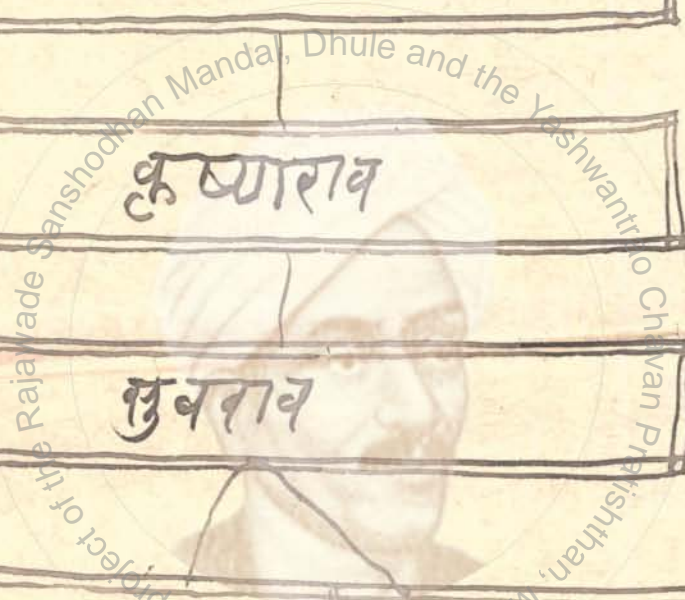 Joint Project of the Rajawade Sanshodhan Mandal, Dhule and the Yashwantrao Chavan Pratishthan,
कृष्णराव